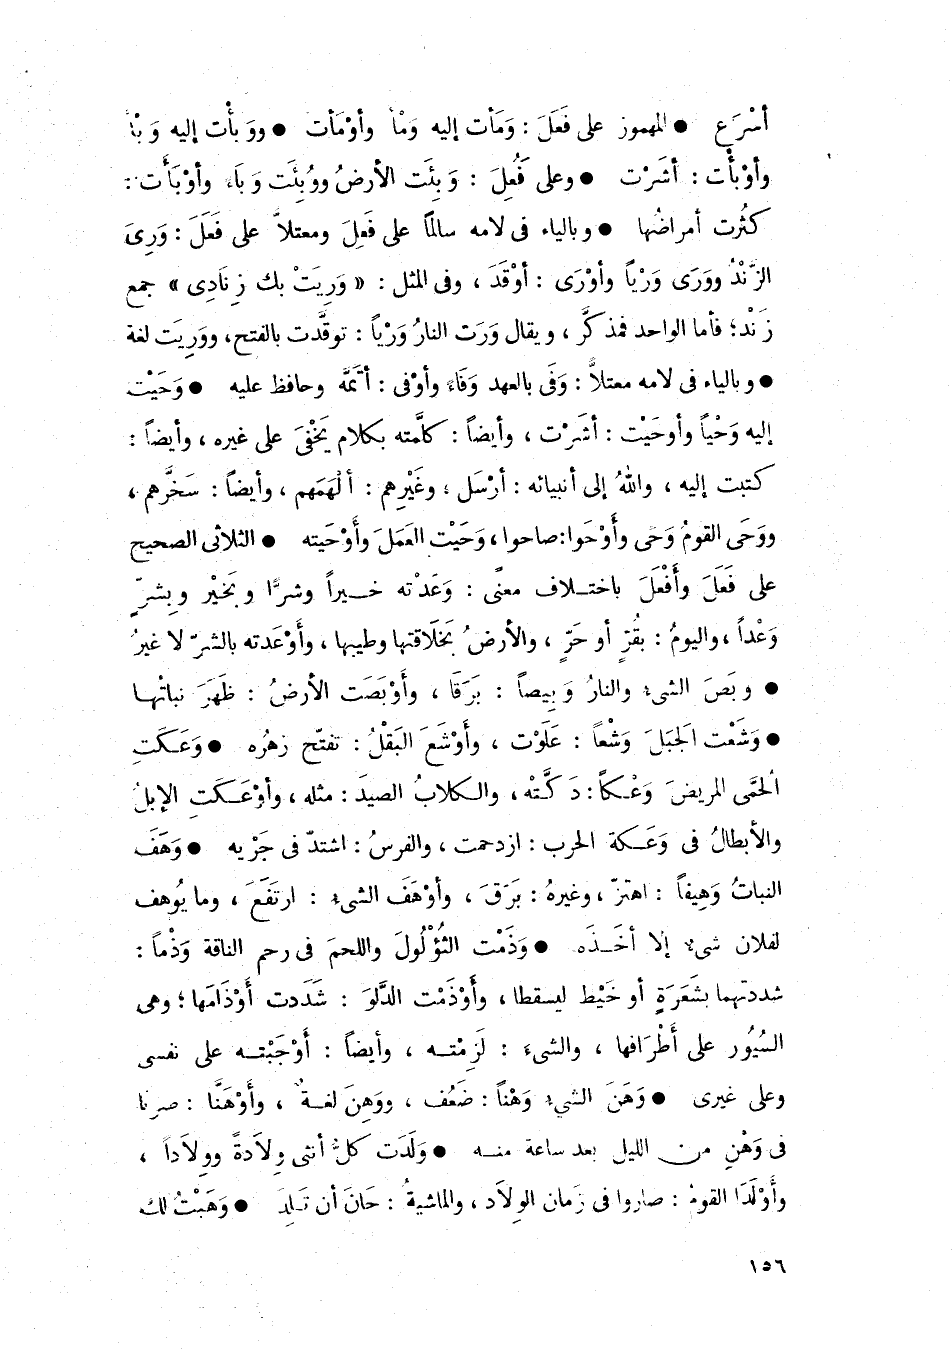 أسْرَع ● المهموز على فَعَلَ : وَمَأت إليه وَمْأ وأوْمَأت ● ووَبأْت إليه وَبْأ
وأوْبأْت : أشَرْت ● وعلى فَعُلَ : وَبِئَت الأرضُ ووُبِئَت وَبَاء وأوْبَأَت :
كثُرت أمراضُها ● وبالياء فى لامه سالماً على فَعِلَ ومعتلاًّ على فَعَلَ : وَرِىَ
الزَّنْدُ ووَرَى وَرْياً وأوْرَى : أوْقَدَ ، وفى المثل : « وَرِيَتْ بك زِنَادِى » جمع
زَنْد؛ فأما الواحد فمذكَّر ، ويقال وَرَت النارُ وَرْياً : توقَّدت بالفتح، ووَرِيَت لغة
● وبالياء فى لامه معتلاًّ : وَفَى بالعهد وَفَاءً وأوْفى : أتَمَّه وحافظ عليه ● وَحَيْت
إليه وَحْياً وأوحَيْت : أشَرْت ، وأيضاً : كلَّمته بكلام يَخْفَى على غيره ، وأيضاً :
كتبت إليه ، واللهُ إلى أنبيائه : أرْسَل ، وغَيْرِهم : ألْهَمَهم ، وأيضاً : سَخَّرهم ،
ووَحَى القومُ وَحًى وأَوْحَوا: صاحوا ، وَحَيْت العَمَلَ وأَوْحَيته ● الثلاثى الصحيح
على فَعَلَ وأَفْعَلَ باختلاف معنًى : وَعَدْته خيراً وشرًّا وبَخيْر وبِشرٍّ
وَعْداً ، واليومُ : بقُرٍّ أو حَرٍّ ، والأرضُ بَخَلَاقتها وطيبها ، وأوْعَدته بالشرّ لا غيرُ
● وبَصَ الشىء والنارُ وَبِيصاً : بَرَقَا ، وأَوْبَصَت الأرضُ : ظَهَرَ نباتْها
● وَشَعْت الجَبَلَ وَشْعاً : عَلَوْت ، وأَوْشَعَ البَقْلُ : تفتّح زهرُه ● وَعَكَتِ
الحُمَّى المريضَ وَعْكاً : دَكَّتْه ، والكلابُ الصيدَ : مثله ، وأوْعَكَتِ الإبلُ
والأبطالُ فى وَعَكة الحرب : ازدحمت ، والفرسُ : اشتدّ فى جَرْيه ● وَهَفَ
النباتُ وَهِيفاً : اهتزّ ، وغيرهُ : بَرَقَ ، وأوْهَفَ الشىء : ارتَفَعَ ، وما يُوهف
لفلان شىء إلا أخَذَه ● وَذَمْت الثُؤْلُولَ واللحمَ فى رحم الناقة وَذْماً :
شددتهما بشَعَرَةٍ أو خَيْط ليسقطا ، وأَوْذَمْت الدَّلوَ : شَدَدت أَوْذَامَها ؛ وهى
السُيُور على أَطْرَافها ، والشىءَ : لَزِمْته ، وأيضاً : أَوْجَبْته على نفسى
وعلى غيرى ● وَهَنَ الشىء وَهْناً : ضَعُف ، ووَهِنَ لغةٌ ، وأَوْهَنَّا : صرنا
فى وَهْنٍ من الليل بعد ساعة منه ● وَلَدَت كلُّ أنثى وِلَادةً ووِلَاداً ،
وأَوْلَدَا القومُ : صاروا فى زَمان الوِلَاد ، والماشيةُ : حَانَ أن تَلِدَ ● وَهَبْتُ لك
١٥٦